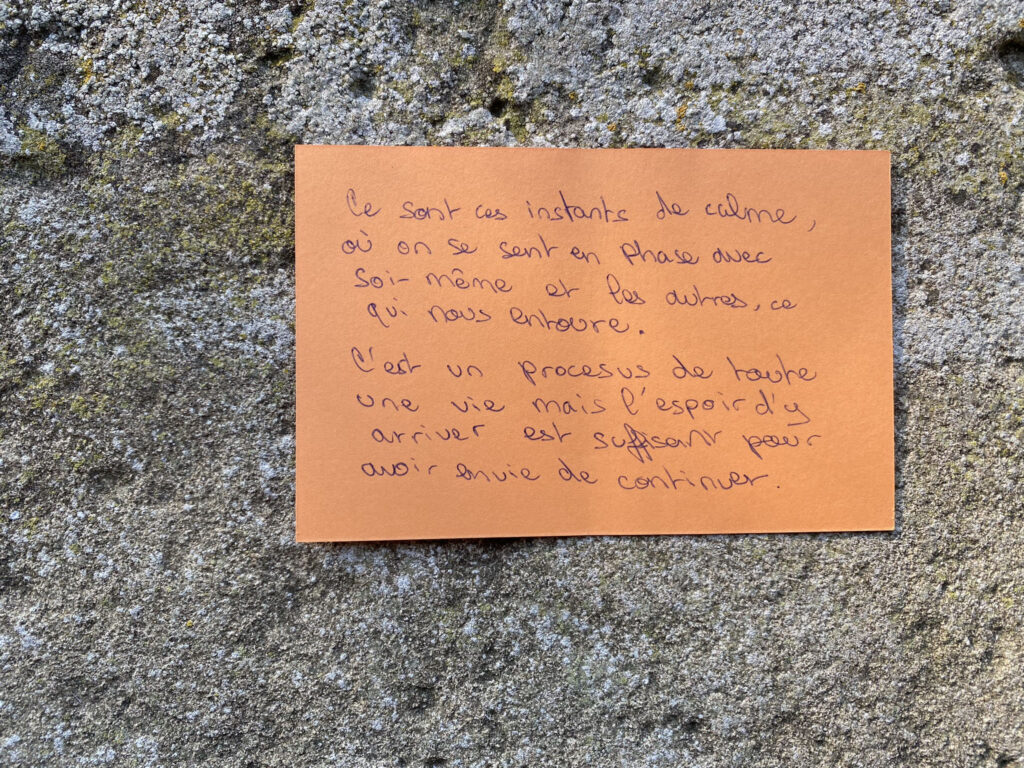 Ce sont ces instants de calme,
où on se sent en phase avec
soi-même et les autres, ce
qui nous entoure.
C'est un procesus de toute
une vie mais l'espoir d'y
arriver est suffisant pour
avoir envie de continuer.